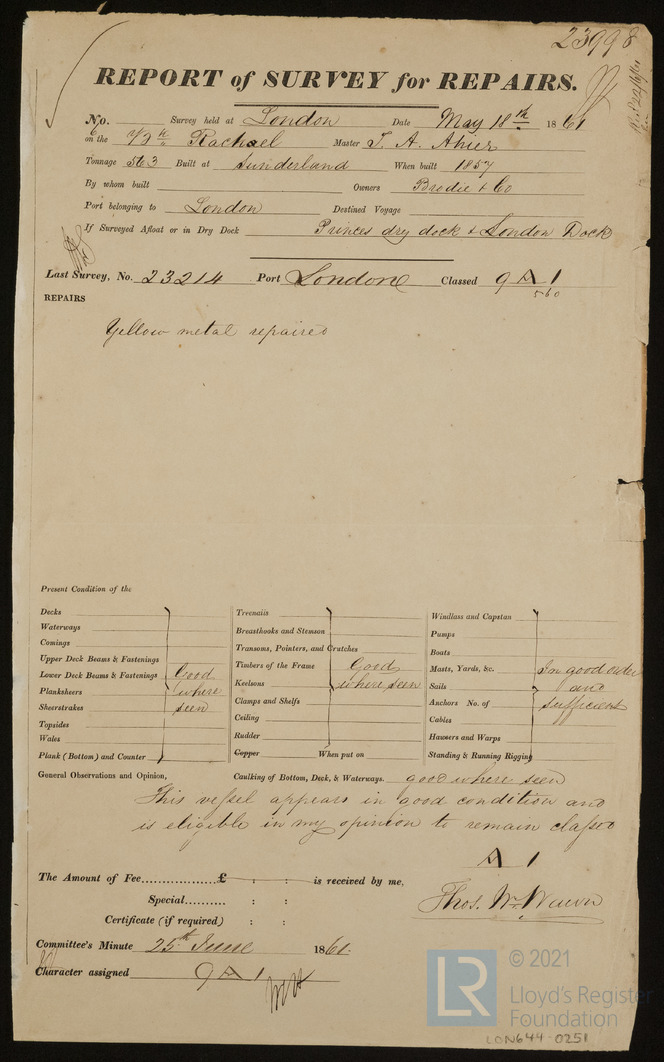 23998
REPORT of SURVEY for REPAIRS.
No. Survey held at London Date May 18th 1861
on the Rachael Master T. A. Ahier
Tonnage 563 Built at Sunderland When built 1857
By whom built Owners Brodie & Co
Port belonging to London Destined Voyage
If Surveyed Afloat or in Dry Dock Princes dry dock & London Dock
Last Survey, No. 23214 Port London Classed 9 A 1
560
REPAIRS
Yellow metal repaired
Present Condition of the
Decks
Waterways
Comings
Upper Deck Beams & Fastenings
Lower Deck Beams & Fastenings Good
Planksheers where
Sheerstrakes seen
Topsides
Wales
Plank (Bottom) and Counter
Treenails
Breasthooks and Stemson
Transoms, Pointers, and Crutches
Timbers of the Frame Good
Keelsons where seen
Clamps and Shelfs
Ceiling
Rudder
Copper When put on
Windlass and Capstan
Pumps
Boats
Masts, Yards, &c. In good order
Sails and
Anchors No. of sufficient
Cables
Hawsers and Warps
Standing & Running Rigging
General Observations and Opinion, Caulking of Bottom, Deck, & Waterways. good where seen
This vessel appears in good condition and
is eligible in my opinion to remain classed
A 1
The Amount of Fee................£ : : is received by me,
Special.......... : :
Certificate (if required) : :
Thos. Wm. Wawn
Committee's Minute 25th June 1861.
Character assigned 9 A 1
LR © 2021
Lloyd's Register
Foundation
LON644-0251